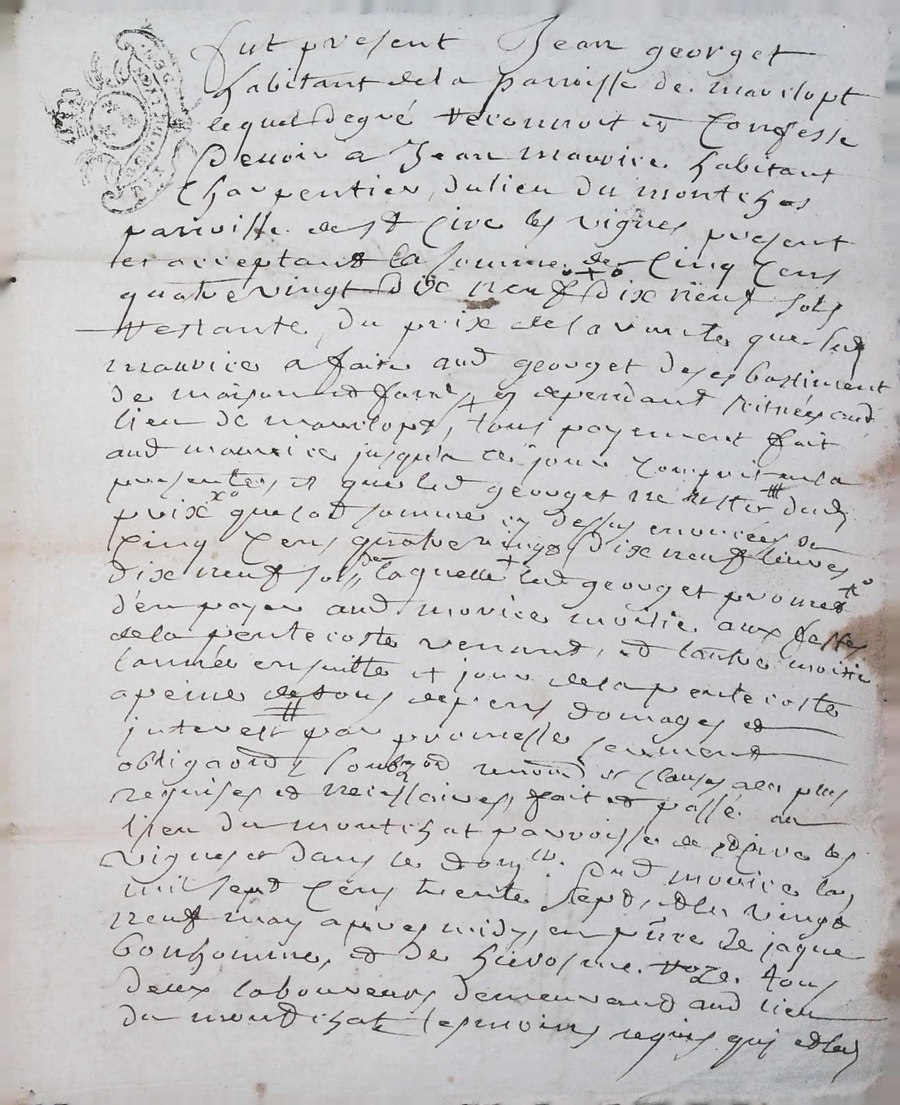 fut present Jean georget
habitant de la parroisse de maulopt
lequel de gré reconnoit et confesse
devoir a Jean mauvice habitant
Charpentier, du lieu du montchat
parroisse de st Cire les vignes present
et acceptant la somme de Cinq Cens
quatre vingt dix neuf dix neuf sols
restante, du prix de la vante que led
mauvice a faite aud georget des bastiment
de maison et dependant scitués aud
lieu de maulopt, tous payement fait
aud mauvice jusqu'a ce jour compris en la
presente, et que led georget ne reste dud
prix que lad somme cy dessus enoncée de
Cinq Cens quatre vingt dix neuf livres
dix neuf sols, laquelle led georget promet
d'en payer aud movice moitié aux festes
de la pentecoste venant, et lautre moitié
lannée ensuitte et jour de la pentecoste
a peine de tous depens domages et
interest par promesse serment
obligaōn, renonc et clauses a ce plus
requises et necessaires, fait et passé au
lieu du montchat parroisse de st cire les
vignes et dans le domlle dud movice lan
mil sept Cens trente sept, et le vingt
neuf may apres midy, en pnce de jaque
bonhomme, et de hierosme tous
deux laboureurs demeurand aud lieu
du montchat tesmoins requis qui et led